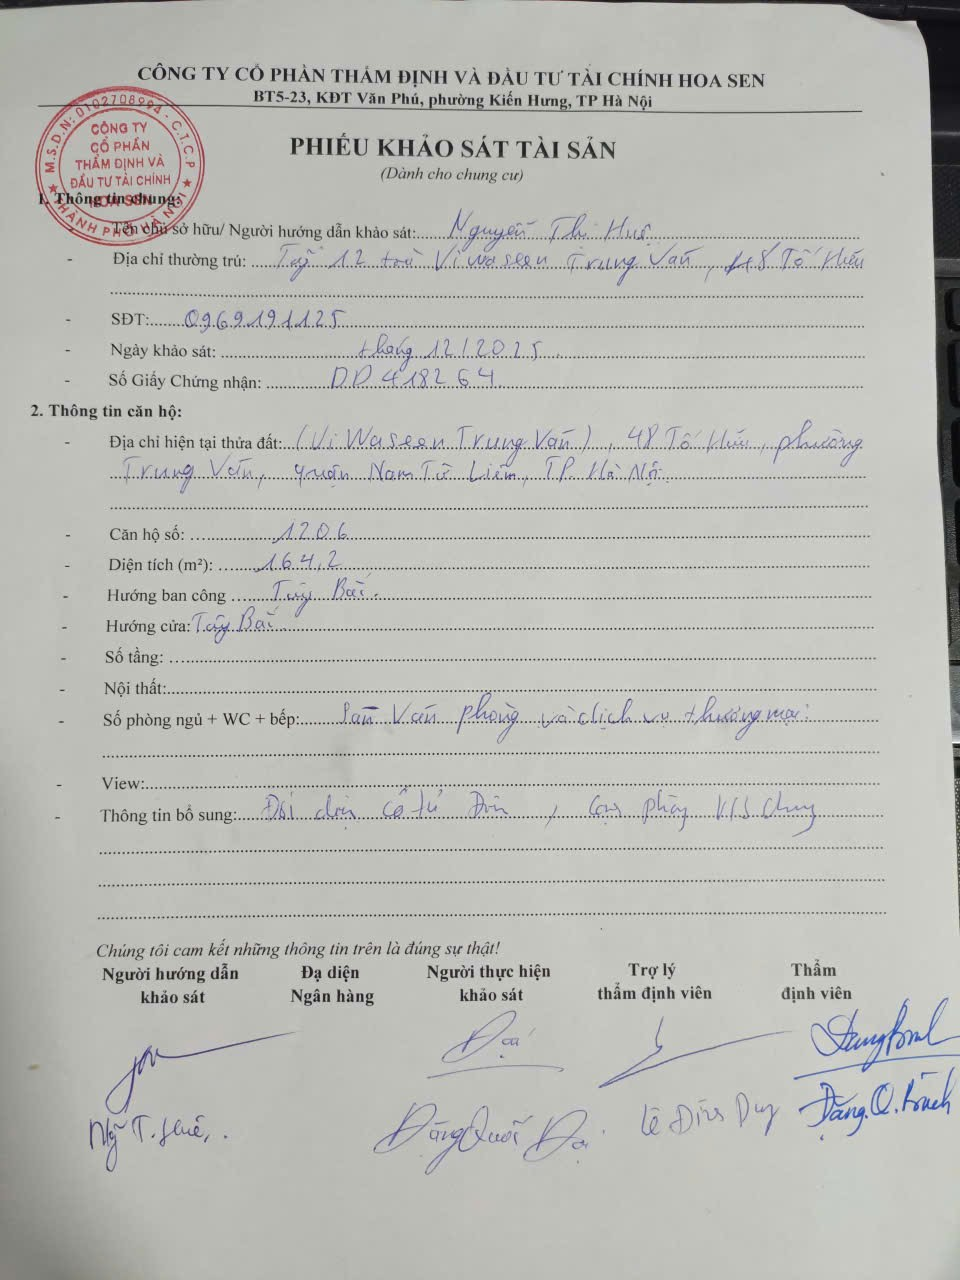 CÔNG TY CỔ PHẦN THẨM ĐỊNH VÀ ĐẦU TƯ TÀI CHÍNH HOA SEN
BT5-23, KĐT Văn Phú, phường Kiến Hưng, TP Hà Nội
M.S.D.N: 0102708994 - C.T.C.P
CÔNG TY
CỔ PHẦN
THẨM ĐỊNH VÀ
ĐẦU TƯ TÀI CHÍNH
HOA SEN
THÀNH PHỐ HÀ NỘI
PHIẾU KHẢO SÁT TÀI SẢN
(Dành cho chung cư)
1. Thông tin chung:
Tên chủ sở hữu/ Người hướng dẫn khảo sát: Nguyễn Thị Huê
- Địa chỉ thường trú: Tầng 12 toà Viwaseen Trung Văn, 48 Tố Hữu
- SĐT: 0969191125
- Ngày khảo sát: tháng 12/2025
- Số Giấy Chứng nhận: DD 418264
2. Thông tin căn hộ:
- Địa chỉ hiện tại thửa đất: (ViWaseen Trung Văn), 48 Tố Hữu, phường
Trung Văn, quận Nam Từ Liêm, TP. Hà Nội
- Căn hộ số: 1206
- Diện tích (m²): 164,2
- Hướng ban công Tây Bắc.
- Hướng cửa: Tây Bắc.
- Số tầng:
- Nội thất:
- Số phòng ngủ + WC + bếp: Sàn Văn phòng và dịch vụ thương mại
- View:
- Thông tin bổ sung: Đối diện
Chúng tôi cam kết những thông tin trên là đúng sự thật!
Người hướng dẫn Đại diện Người thực hiện Trợ lý Thẩm
khảo sát Ngân hàng khảo sát thẩm định viên định viên
Đại
Ng T. Huê Đặng Quốc Đại Lê Duy Đặng. Q. Bách